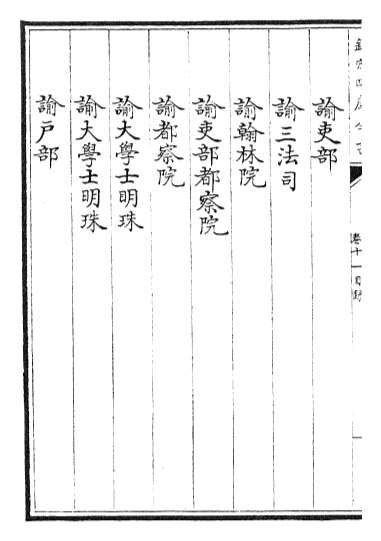 諭吏部
諭三法司
諭翰林院
諭吏部都察院
諭都察院
諭大學士明珠
諭大學士明珠
諭戶部